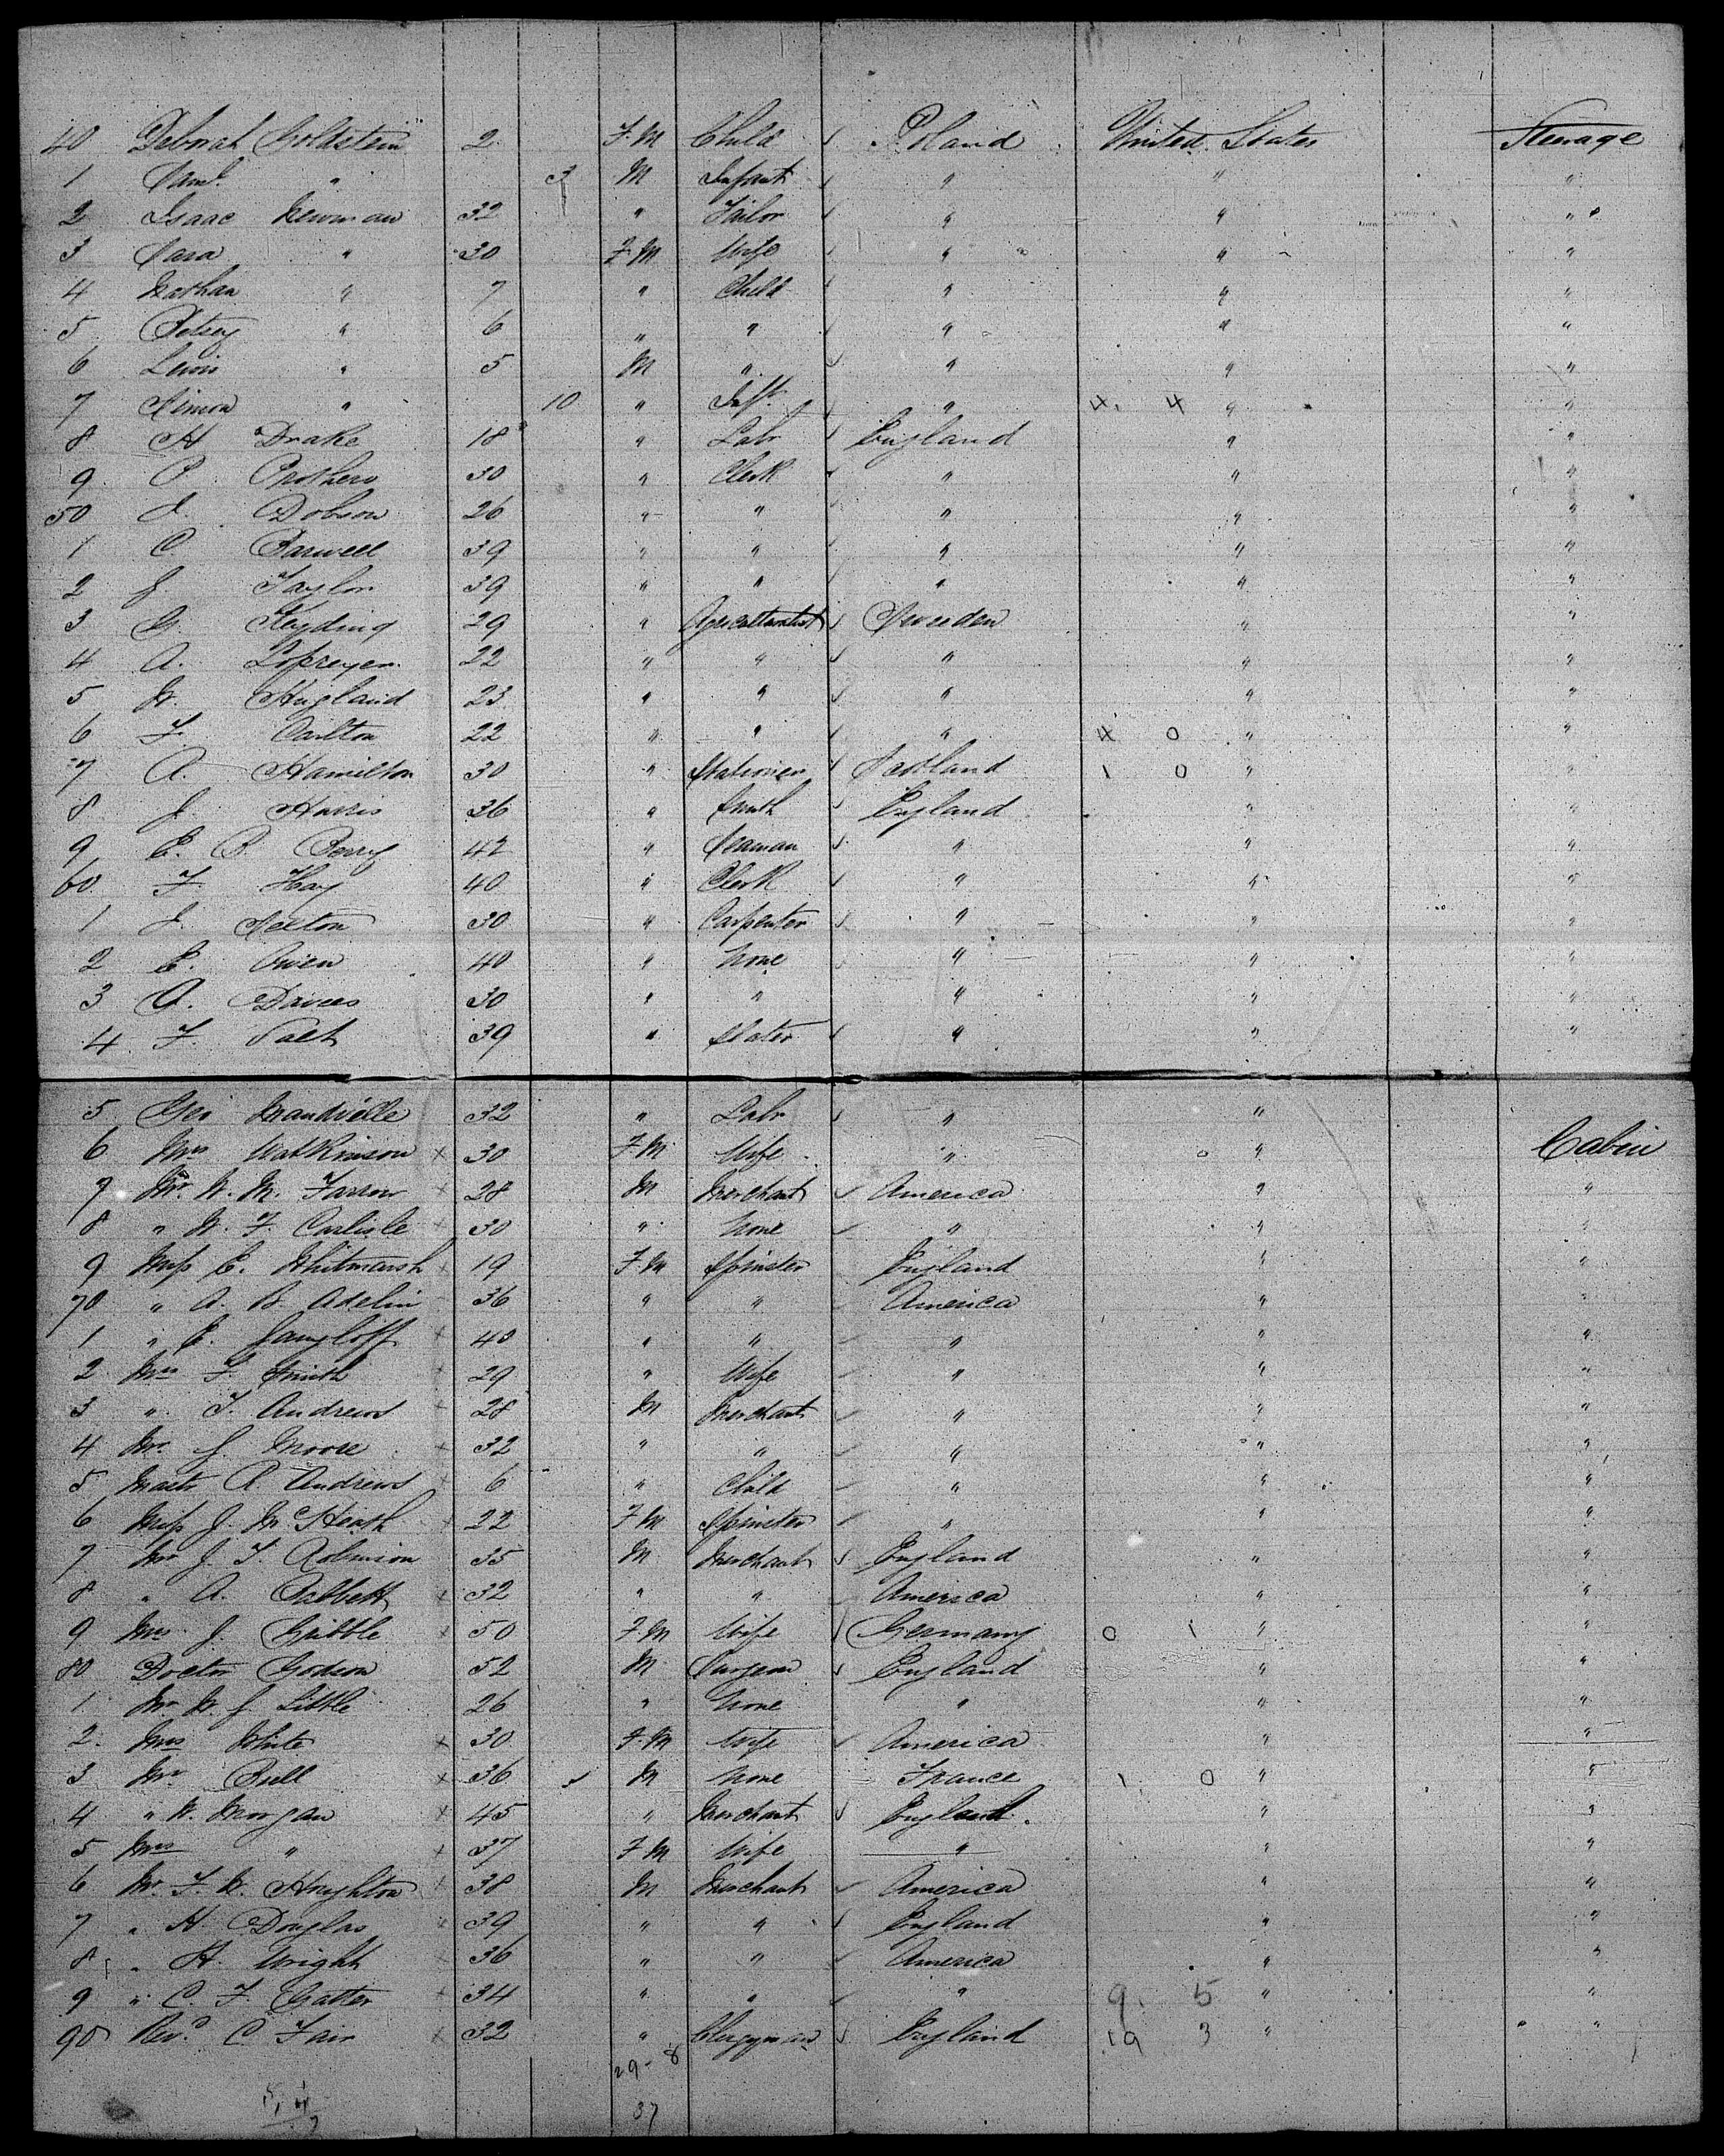 40 Deborah Goldstein 2 F.M Child Poland United States Steerage
1 Saml. " 3 M Infant " " "
2 Isaac Newman 32 " Tailor " " "
3 Sara " 30 F.M Wife " " "
4 Nathan " 7 " Child " " "
5 Betsey " 6 " " " " "
6 Lewis " 5 M " " " "
7 Simon " 10 " Inft. " 4. 4 " "
8 H Drake 18 " Labr England " "
9 P. Prothero 30 " Clerk " " "
50 J. Dobson 26 " " " " "
1 C. Barwell 39 " " " " "
2 J. Taylor 39 " " " " "
3 G. 29 " Agriculturalist Sweeden " "
4 A. 22 " " " " "
5 W. Hugland 23 " " " " "
6 F. Carlton 22 " " " 4 0 " "
7 A. Hamilton 30 " Stationer Scotland 1 0 " "
8 J. Harris 36 " Smith England " "
9 E. P. Perry 42 " Seaman " " "
60 F. Hay 40 " Clerk " " "
1 J. 30 " Carpenter " " "
2 E. Owen 40 " None " " "
3 A. Davies 30 " " " " "
4 F. Salt 39 " Slater " " "
5 Geo Mandville 32 " Labr " "
6 Mrs Watkinson x 30 F.M. Wife " " Cabin
7 Mr. W. M. Farrow x 28 M Merchant America " "
8 " W. F. Carlisle x 30 " None " " "
9 Miss E. Whitmarsh x 19 F.M Spinster England " "
70 " A. B. Adelin 36 " " America " "
1 " E. Gangloff x 40 " " " " "
2 Mrs F. Smith x 29 " Wife " " "
3 " T. Andrews x 28 M Merchant " " "
4 Mr. J Moore x 32 " " " " "
5 Mastr R. Andrews x 6 " Child " " "
6 Miss J. M. Heath x 22 F M Spinster " " "
7 Mr J. T. Robinson 35 M Merchant England " "
8 " A. Babbett x 32 " " America " "
9 Mrs J. Gribble x 50 F.M Wife Germany 0 1 " "
80 Doctor Godson 52 M Surgeon England " "
1 Mr W. J. Little 26 " None " " "
2. Mrs White x 30 F.M Wife America " "
3 Mr Bull x 36 M None France 1 0 " "
4 " W. Morgan x 45 " Merchant England. " "
5 Mrs " x 37 F M Wife " " "
6 Mr. F. W. Houghton x 38 M Merchant America " "
7 " H. Douglas x 39 " " England " "
8 " H. Wright x 36 " " America " "
9 " C. F. Gatter x 34 " " " 9. 5 " "
90 Revd. C Fair x 32 " Clergyman England 19 3 " "
29 - 8
37